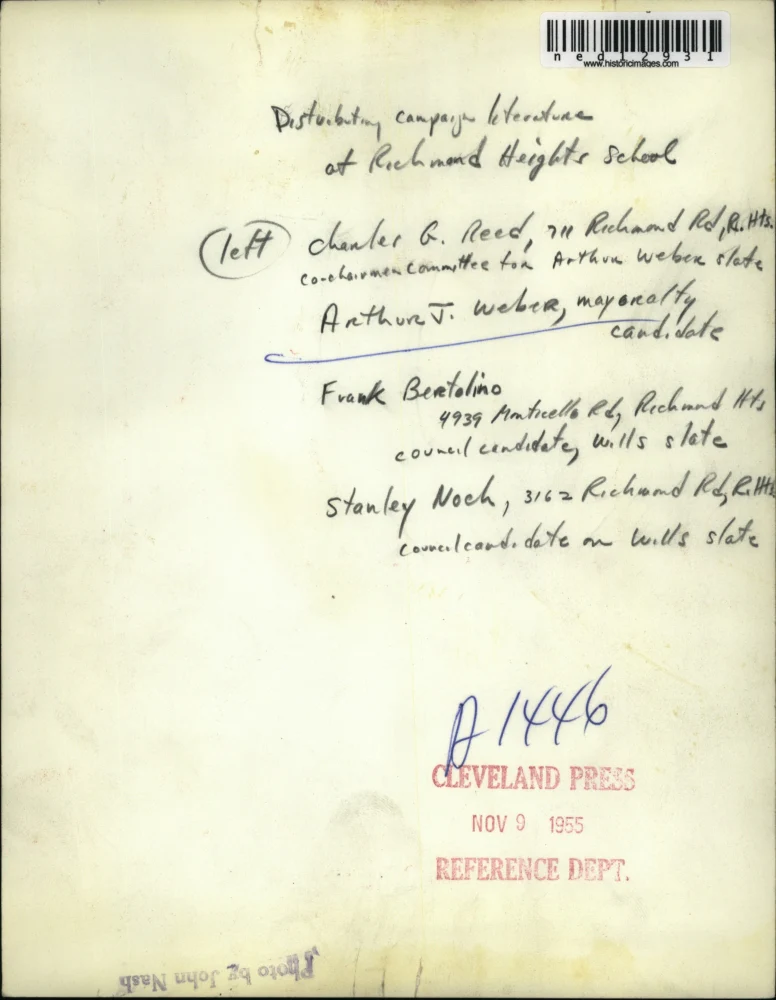 ned12931
www.historicimages.com
Distributing campaign literature
at Richmond Heights School
(left) Charles G. Reed, 711 Richmond Rd, R. Hts.
co-chairmen committee for Arthur Weber slate
Arthur J. Weber, mayoralty
candidate
Frank Bertolino
4939 Monticello Rd, Richmond Hts
council candidate, Wills slate
Stanley Noch, 3162 Richmond Rd, R. Hts
council candidate on Wills slate
A 1446
CLEVELAND PRESS
NOV 9 1955
REFERENCE DEPT.
Photo by John Nash